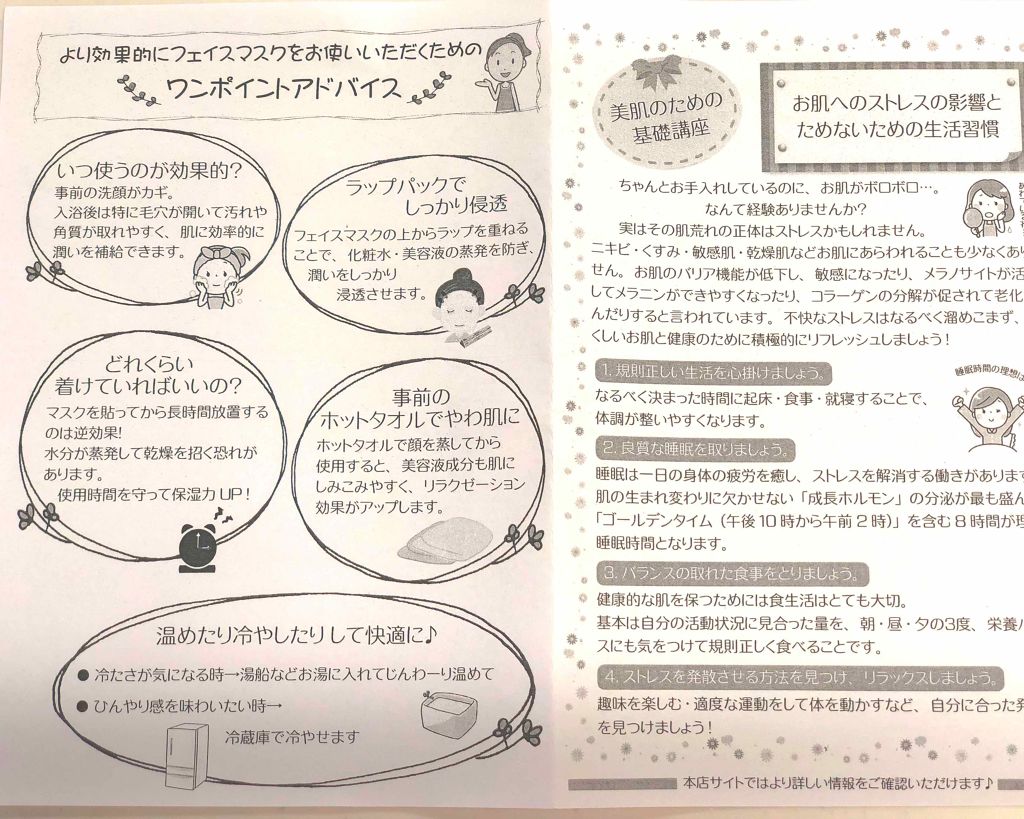 より効果的にフェイスマスクをお使いいただくための
ワンポイントアドバイス
いつ使うのが効果的?
事前の洗顔がカギ。
入浴後は特に毛穴が開いて汚れや
角質が取れやすく、肌に効率的に
潤いを補給できます。
ラップパックで
しっかり浸透
フェイスマスクの上からラップを重ねる
ことで、化粧水・美容液の蒸発を防ぎ、
潤いをしっかり
浸透させます。
どれくらい
着けていればいいの?
マスクを貼ってから長時間放置する
のは逆効果!
水分が蒸発して乾燥を招く恐れが
あります。
使用時間を守って保湿力UP!
事前の
ホットタオルでやわ肌に
ホットタオルで顔を蒸してから
使用すると、美容液成分も肌に
しみこみやすく、リラクゼーション
効果がアップします。
温めたり冷やしたりして快適に♪
● 冷たさが気になる時→湯船などお湯に入れてじんわーり温めて
● ひんやり感を味わいたい時→
冷蔵庫で冷やせます
美肌のための
基礎講座
お肌へのストレスの影響と
ためないための生活習慣
ちゃんとお手入れしているのに、お肌がボロボロ…。
なんて経験ありませんか?
実はその肌荒れの正体はストレスかもしれません。
ニキビ・くすみ・敏感肌・乾燥肌などお肌にあらわれることも少なくあり
せん。お肌のバリア機能が低下し、敏感になったり、メラノサイトが活
してメラニンができやすくなったり、コラーゲンの分解が促されて老化
んだりすると言われています。不快なストレスはなるべく溜めこまず、
くしいお肌と健康のために積極的にリフレッシュしましょう!
1. 規則正しい生活を心掛けましょう。
なるべく決まった時間に起床・食事・就寝することで、
体調が整いやすくなります。
睡眠時間の理想は
2. 良質な睡眠を取りましょう。
睡眠は一日の身体の疲労を癒し、ストレスを解消する働きがあります
肌の生まれ変わりに欠かせない「成長ホルモン」の分泌が最も盛ん
「ゴールデンタイム(午後10時から午前2時)」を含む8時間が理
睡眠時間となります。
3. バランスの取れた食事をとりましょう。
健康的な肌を保つためには食生活はとても大切。
基本は自分の活動状況に見合った量を、朝・昼・夕の3度、栄養バ
スにも気をつけて規則正しく食べることです。
4. ストレスを発散させる方法を見つけ、リラックスしましょう。
趣味を楽しむ・適度な運動をして体を動かすなど、自分に合った発
を見つけましょう!
本店サイトではより詳しい情報をご確認いただけます♪